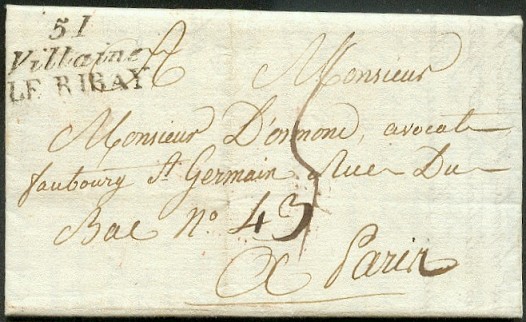 51
Villaine
LE RIBAY
Monsieur
Monsieur D'ormone, avocat
faubourg St Germain Rue Du
Bac No 43
A Paris